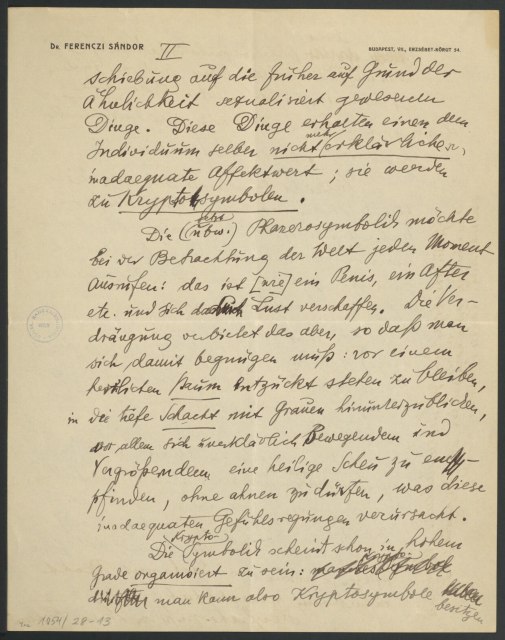 Dr. FERENCZI SÁNDOR
II
BUDAPEST, VII., ERZSÉBET-KÖRÚT 54.
schiebung auf die früher auf Grund der
Ähnlichkeit sexualisiert gewesenen
Dinge. Diese Dinge erhalten einen dem
Individuum selber nicht mehr erklärlichen,
inadaequate Affektwert; sie werden
zu Kryptosymbolen.
Die (ubw.) Phanerosymbolik möchte
bei der Betrachtung der Welt jeden Moment
ausrufen: das ist ein Penis, ein After
etc. und sich dadurch Lust verschaffen. Die Ver-
drängung verbietet das aber, so daß man
sich damit begnügen muß: vor einem
herrlichen Baum entzückt stehen zu bleiben,
in die tiefe Schacht mit Grauen hinunterzublicken,
vor allem sich unerklärlich Bewegendem und
Vergrößerndem eine heilige Scheu zu em-
pfinden, ohne ahnen zu dürfen, was diese
inadaequaten Gefühlsregungen verursacht.
Die Krypto-Symbolik scheint schon in hohem
Grade organisiert zu sein:
man kann also Kryptosymbole
besitzen
1954/28-13